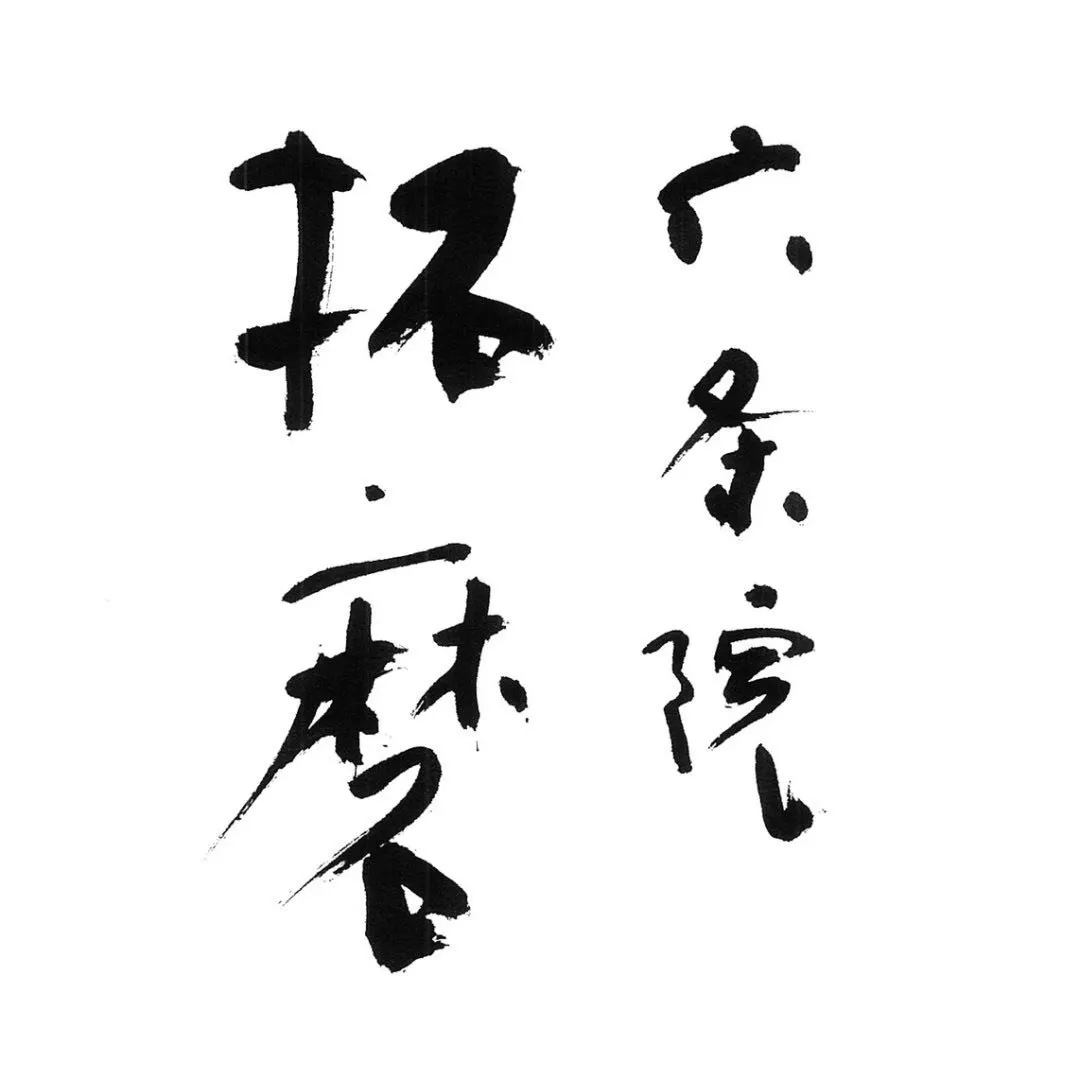 六条院
拓磨